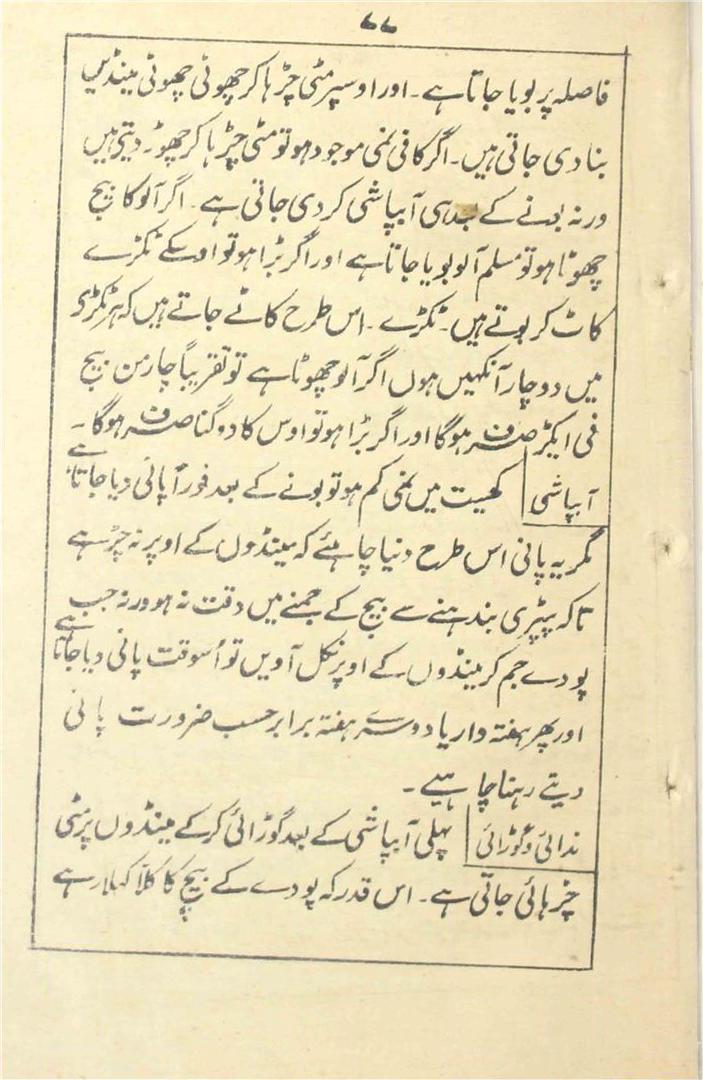 ۷۷
فاصلہ پر بویا جاتا ہے۔ اور اوسپر مٹی چڑہا کر چھوٹی چھوٹی مینڈیں
بنا دی جاتی ہیں۔ اگر کافی نمی موجود ہو تو مٹی چڑہا کر چھوڑ دیتے ہیں
ورنہ بونے کے بعد ہی آبپاشی کر دی جاتی ہے۔ اگر آلو کا بیج
چھوٹا ہو تو مسلم آلو بویا جاتا ہے اور اگر بڑا ہو تو اوسکے ٹکڑے
کاٹ کر بوتے ہیں۔ ٹکڑے۔ اس طرح کاٹے جاتے ہیں کہ ہر ٹکڑی
میں دو چار آنکھیں ہوں اگر آلو چھوٹا ہے تو تقریباً چار من بیج
فی ایکڑ صرف ہوگا اور اگر بڑا ہو تو اوس کا دوگنا صرف ہوگا۔
آبپاشی کھیت میں نمی کم ہو تو بونے کے بعد فوراً پانی دیا جاتا ہے
مگر یہ پانی اس طرح دینا چاہئے کہ مینڈوں کے اوپر نہ چڑہے
تاکہ پپڑی بندہنے سے بیج کے جمنے میں دقت نہ ہو ورنہ جب
پودے جم کر مینڈوں کے اوپر نکل آویں تو اُسوقت پانی دیا جاتا ہے
اور پھر ہفتہ وار یا دوسرے ہفتہ برابر حسب ضرورت پانی
دیتے رہنا چاہیے۔
ندائی وگوڑائی پہلی آبپاشی کے بعد گوڑائی کرکے مینڈوں پر مٹی
چڑہائی جاتی ہے۔ اس قدر کہ پودے کے بیچ کا کلا کہلا رہے